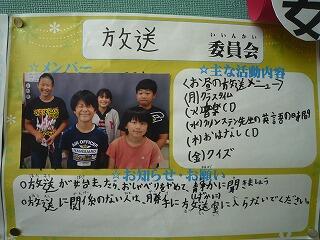 放送 委員会
いいんかい
☆メンバー
☆主な活動内容
〈お昼の放送メニュー〉
(月)クラスタイム
(火)音楽CD
(水)クリステン先生の英語の時間
(木)おはなしCD
(金)クイズ
☆お知らせ・お願い
○放送が始まったら、おしゃべりをやめて、静かに聞きましょう
○放送に関係のない人は、勝手に放送室に入らないでください。